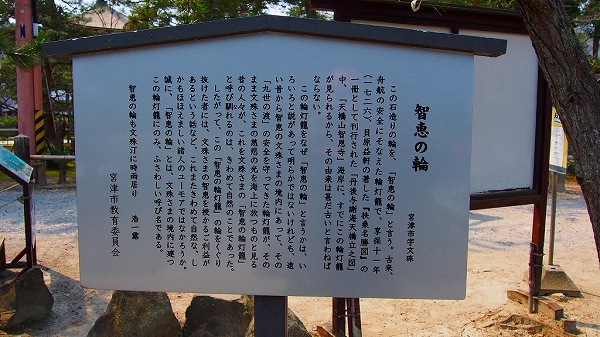 智恵の輪
宮津市字文珠
この石造りの輪を、「智恵の輪」と言う。古来、
舟航の安全にそなえた輪灯籠で、享保十一年
(一七二六)、貝原益軒の著した「扶桑名勝図」の
一冊として刊行された「丹後与謝海天橋立之図」
中、「天橋山智恩寺」海岸に、すでにこの輪灯籠
が見られるから、その由来は甚だ古いと言わねば
ならない。
この輪灯籠をなぜ「智恵の輪」と言うかは、い
ろいろと説があって明らかではないけれども、遠
い昔から智恵の文殊さまの境内にあって、その
「九世の渡」の安全を守ってきた輪灯籠が、その
まま文殊さまの慈悲の光を海上に放つものと見る
昔の人々が、これを文殊さまの「智恵の輪灯籠」
と呼び馴れるのは、きわめて自然のことであった。
したがって、この「智恵の輪灯籠」の輪をくぐり
抜けた者には、文殊さまの智恵を授かるご利益が
あるという話など、これまたきわめて自然な、し
かもほほえましい諸人のユーモアではなかろうか。
誠に、「智恵の輪」とは、文殊さまの境内に建つ
この輪灯籠にのみ、ふさわしい呼び名である。
智恵の輪も文殊汀に時雨居り　浩一露
宮津市教育委員会